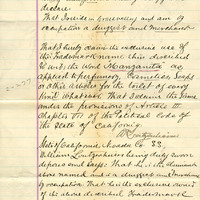 declare.
That I reside in Greenville and am by
occupation a druggist and Merchant
That I hereby claim the exclusive use of
the Trademark name this described
Viz: the Word Manzanita as
applied to perfumery, Cosmetics, Soaps
or other articles for the toilet of every
kind whatsoever That I claim the same
under the provisions of Article III
Chapter VII of the Political Code of
the State of California
State of California, County SS,
William being duly sworn
deposes and says: That he is the
above named and is a druggist and
by occupation That he is the exclusive owner
of the above described Trademark